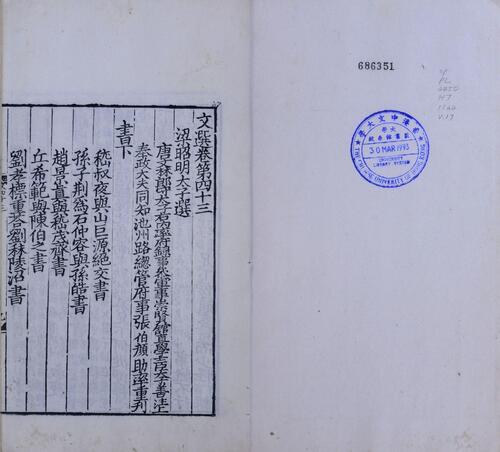 文選卷第四十三
梁昭明太子選
唐文林郎守太子右內率府錄事參軍事崇賢館直學士臣李善注
奉政大夫同知池州路總管府事張伯顏助率重刊
書下
嵇叔夜與山巨源絕交書
孫子荊為石仲容與孫皓書
趙景真與嵇茂齊書
丘希範與陳伯之書
劉孝標重荅劉秣陵沼書
686351
PL
2450
H7
V.17
香港中文大學
大學圖書館系統
30 MAR 1993
UNIVERSITY
LIBRARY SYSTEM
THE CHINESE UNIVERSITY OF HONG KONG